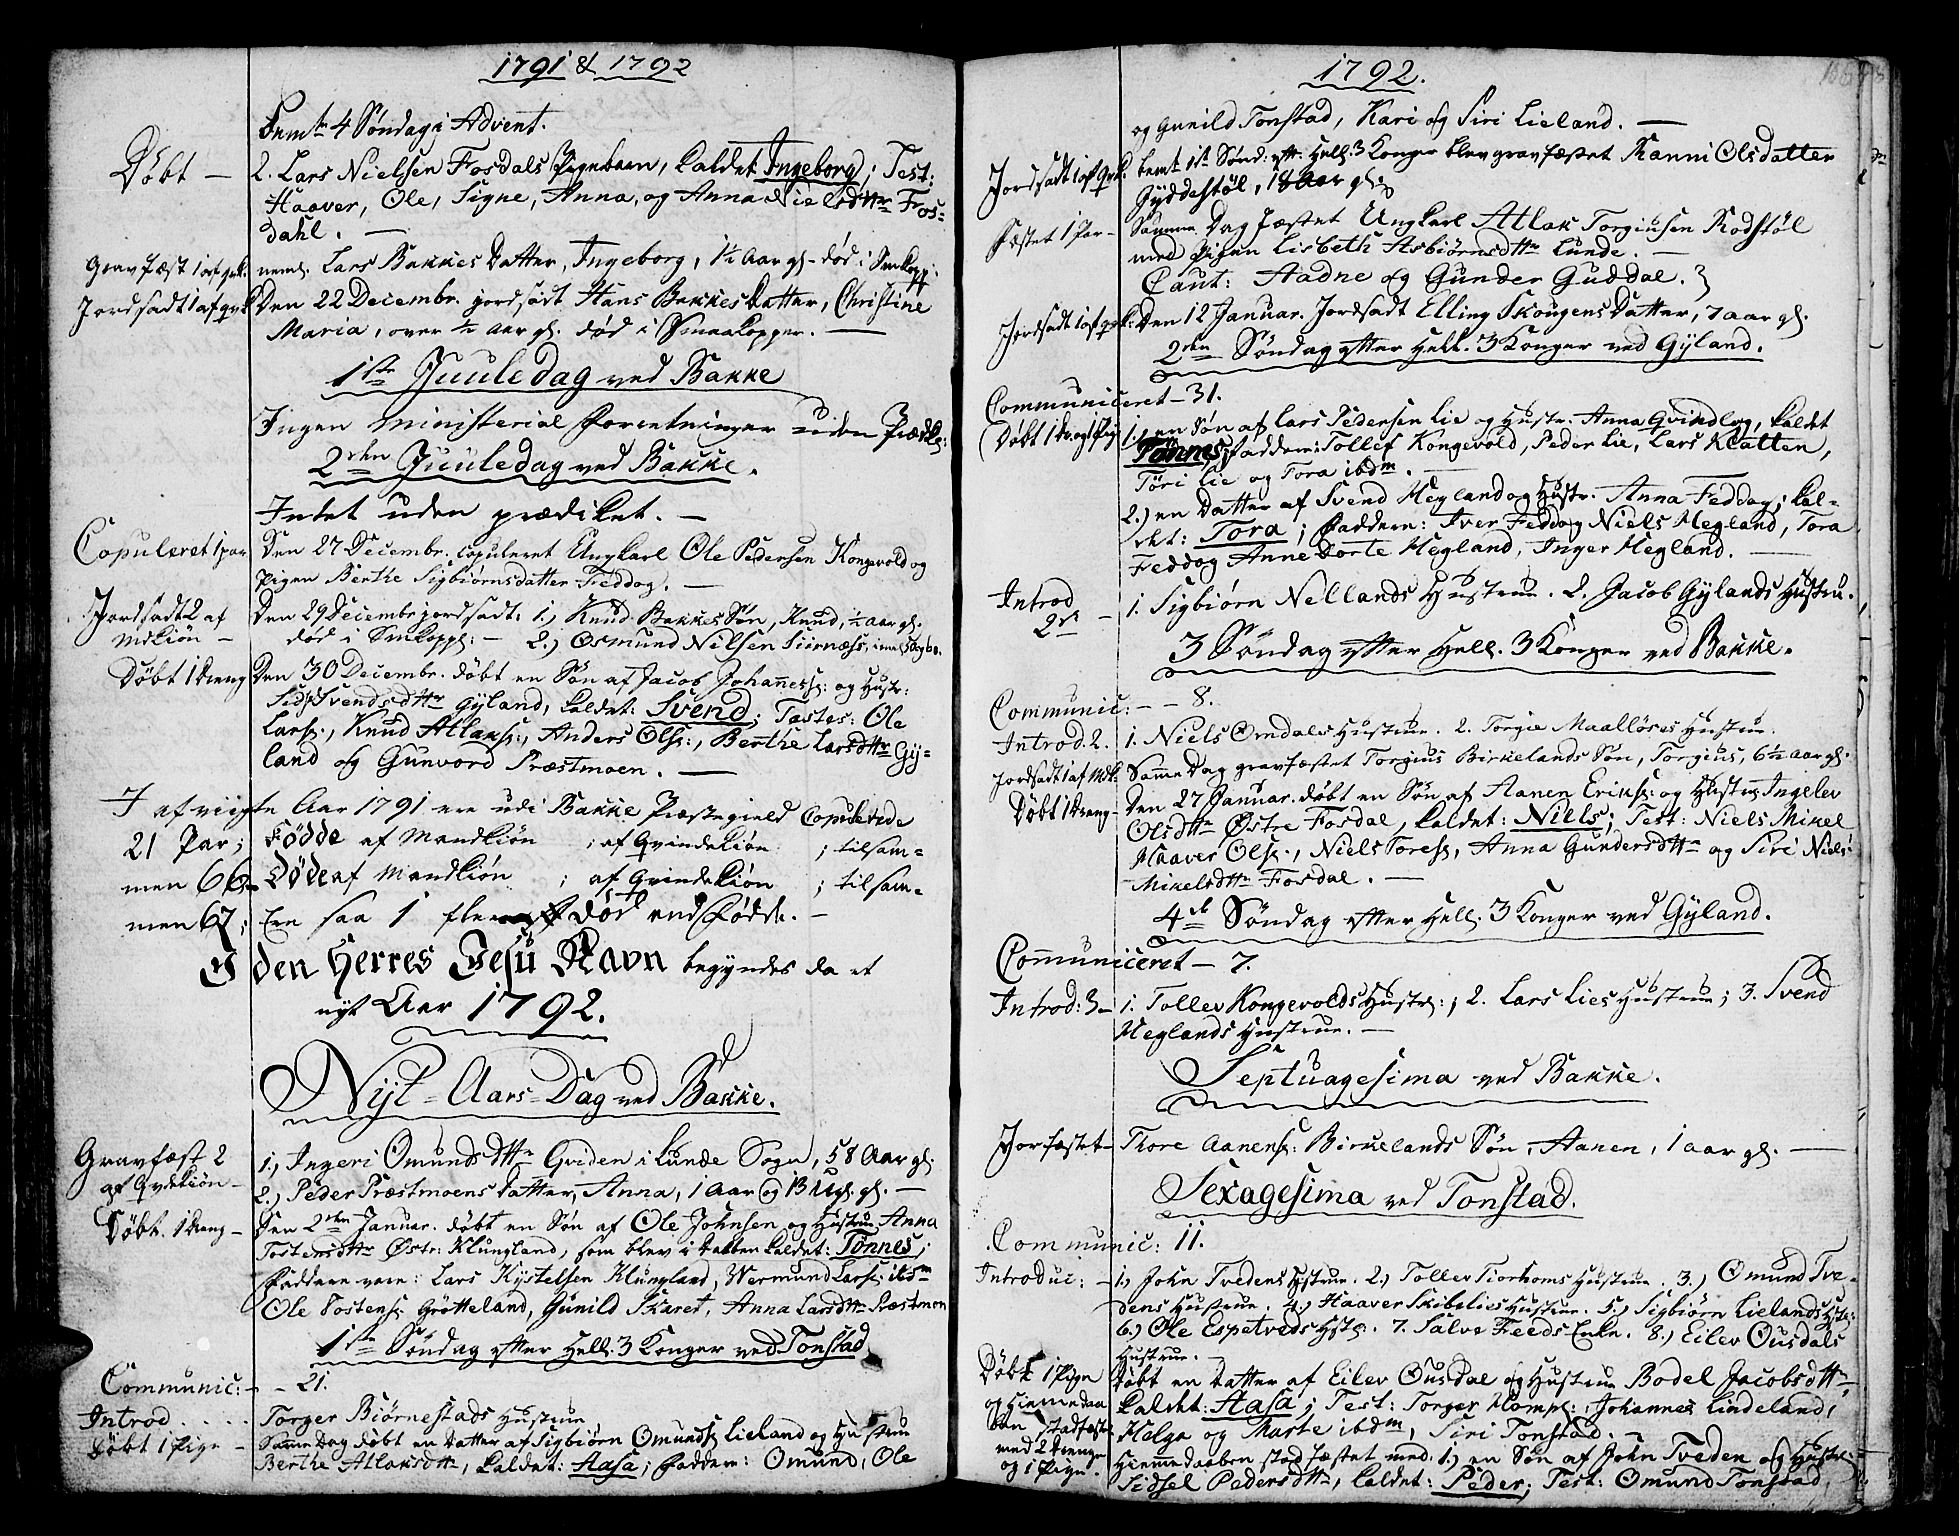 1791 & 1792
Bemte 4 Søndag i Advent.
Døbt — 2. Lars Nielsen Fosdals Pigebarn, kaldet Ingeborg; Test:
Haaver, Ole, Signe, Anna, og Anna Nielsdttr Fos=
dahl. —
Gravfæst 1 af qvk: neml. Lars Bakkes Datter, Ingeborg, 1½ Aar gl. død i Smkopp:
Jordsadt 1 af qvk Den 22 Decembr. jordsadt Hans Bakkes Datter, Christine
Maria, over ½ aar gl. død i Smaakopper. —
1ste Juuledag ved Bakke
Ingen Ministerial Foretninger uden Prædk:
2den Juuledag ved Bakke.
Intet uden prædiket. —
Copuleret 1 par Den 27 Decembr. copuleret Ungkarl Ole Pedersen Kongevold og
Pigen Berthe Sigbiørnsdatter Feddog. —
Jordsadt 2 af Den 29 Decembr jordsadt: 1.) Knud Bakkes Søn, Knud, ½ aar gl.
Mdkiøn — død i Smkopp: — 2.) Osmund Nilsen Siirnæss,
Døbt 1 dreng Den 30 Decembr. døbt en Søn af Jacob Johanness: og Hustr:
Svendsdttr Gyland, kaldet: Svend; Testes: Ole
Larss:, Knud Atlaks:, Anders Ols:, Berthe Larsdttr Gy=
land og Gunvord Præstmoen. —
I afvigte Aar 1791 ere udi Bakke Præstegield Copulerede
21 Par; Fødde af Mandkiøn ; af Qvindekiøn ; tilsam=
men 66. Døde af Mandkiøn ; af Qvindekiøn ; tilsam=
men 67; Ere saa 1 flere død end Fødde. —
I den Herres Jesu Navn begyndes da et
nyt Aar 1792.
Nyt=Aars=Dag ved Bakke.
Gravfæst 2 1.) Ingeri Omundsdttr Gviden i Lunde Sogn, 58 Aar gl.
af Qvdekiøn — 2.) Peder Præstmoens Datter, Anna, 1 Aar og 13 Ugl. gl. —
Døbt. 1 dreng — Den 2den Januar. døbt en Søn af Ole Johnsen og Hustrue Anna
Tostensdttr Østr: Klungland, som blev i Daaben kaldet: Tønnes;
Faddere vare: Lars Kystelsen Klungland, Wermund Larss: ibdm
Ole Tostens: Grøtteland, Gunild Skaret, Anna Larsdttr Præstmoen
1ste Søndag efter Hell. 3 Konger ved Tonstad
Communic: — — 21.
Introd . . . . Torger Biørnestads Hustrue
Døbt 1 Pige — Samme Dag døbt en Datter af Sigbiørn Omunds: Lieland og Hustrue
Berthe Atlaksdttr, kaldet: Aasa; Faddere: Omund, Ole
1792.
og Gunild Tonstad, Kari og Siri Lieland. —
Jordsadt 1 af Qvk. bemt 1ste Sønd: eftr. Hell. 3 Konger blev gravfæstet Ranni Olsdatter
Gyddestøl, 18 Aar gl.
Fæstet 1 Par — Samme Dag Fæstet Ungkarl Atlak Torgiusen Rodstøl
med Pigen Lisbeth Asbiørnsdttr Lunde. —
Caut: Aadne og Gunder Guddal.
Jordsadt 1 af qvk: Den 12 Januar. Jordsadt Elling Skougens Datter, 7 aar gl.
2den Søndag efter Hell. 3 Konger ved Gyland.
Communiceret — 31.
Døbt 1 dreng 1 Pige 1.) en Søn af Lars Pedersen Lie og Hustr: Anna Gvindlog, kaldet
Tønnes; Faddere: Tollef Kongevold, Peder Lie, Lars Klatten,
Tøri Lie og Tora ibdm. —
2.) en Datter af Svend Megland og Hustr. Anna Feddog, kal=
det: Tora; Faddere: Iver Feddog Niels Megland, Tora
Feddog Anne Dorte Megland, Inger Megland. —
Introd 2de — 1. Sigbiørn Nellands Hustrue. 2. Jacob Gylands Hustru.
3 Søndag efter Hell. 3 Konger ved Bakke.
Communic: — — 8.
Introd. 2. 1. Niels Omdals Hustrue. 2. Torgie Maalløses Hustrue.
Jordsadt 1 af Mdk: Samme Dag gravfæstet Torgius Birkelands Søn, Torgius, 6½ aar gl.
Døbt 1 dreng — Den 27 Januar. døbt en Søn af Aanen Eriks: og Hustru Ingelev
Olsdttr Østre Fosdal, kaldet: Niels; Test: Niels Mikel
Haaver Ols:, Niels Tores:, Anna Gundersdttr og Siri Niels
Mikelsdttr Fosdal. —
4de Søndag efter Hell. 3 Konger ved Gyland.
Communiceret — 7.
Introd: 3 — 1. Tollev Kongevolds Hustr:, 2. Lars Lies Hustrue; 3. Svend
Meglands Hustrue. —
Septuagesima ved Bakke.
Jorfæstet — Thore Aanens: Birkelands Søn, Aanen, 1 aar gl. —
Sexagesima ved Tonstad.
Communic: 11.
Introduc: — 1.) John Tvedens Hstrue. 2.) Tollev Tiorhoms Hustrue. 3.) Omund Tve=
dens Hustrue. 4.) Haaver Skibelies Hustrue. 5.) Sigbiørn Lielands Hste:
6.) Ole Espetveds Hst:. 7. Salve Feeds Enke. 8.) Eilev Ousdals
Hustrue. —
Døbt 1 Pige Døbt en Datter af Eilev Ousdal og Hustrue Bodel Jacobsdttr,
og Hiemedaa kaldet: Aasa; Test: Torger Homp:, Johannes Lindeland,
ben stadfæst Helga og Marte ibdm, Siri Tonstad. —
med 2 drenge Hiemedaaben stadfæstet med: 1.) en Søn af John Tveden og Hustr:
og 1 Pige. Sidsel Pedersdttr, kaldet: Peder; Test: Omund Tonstad,